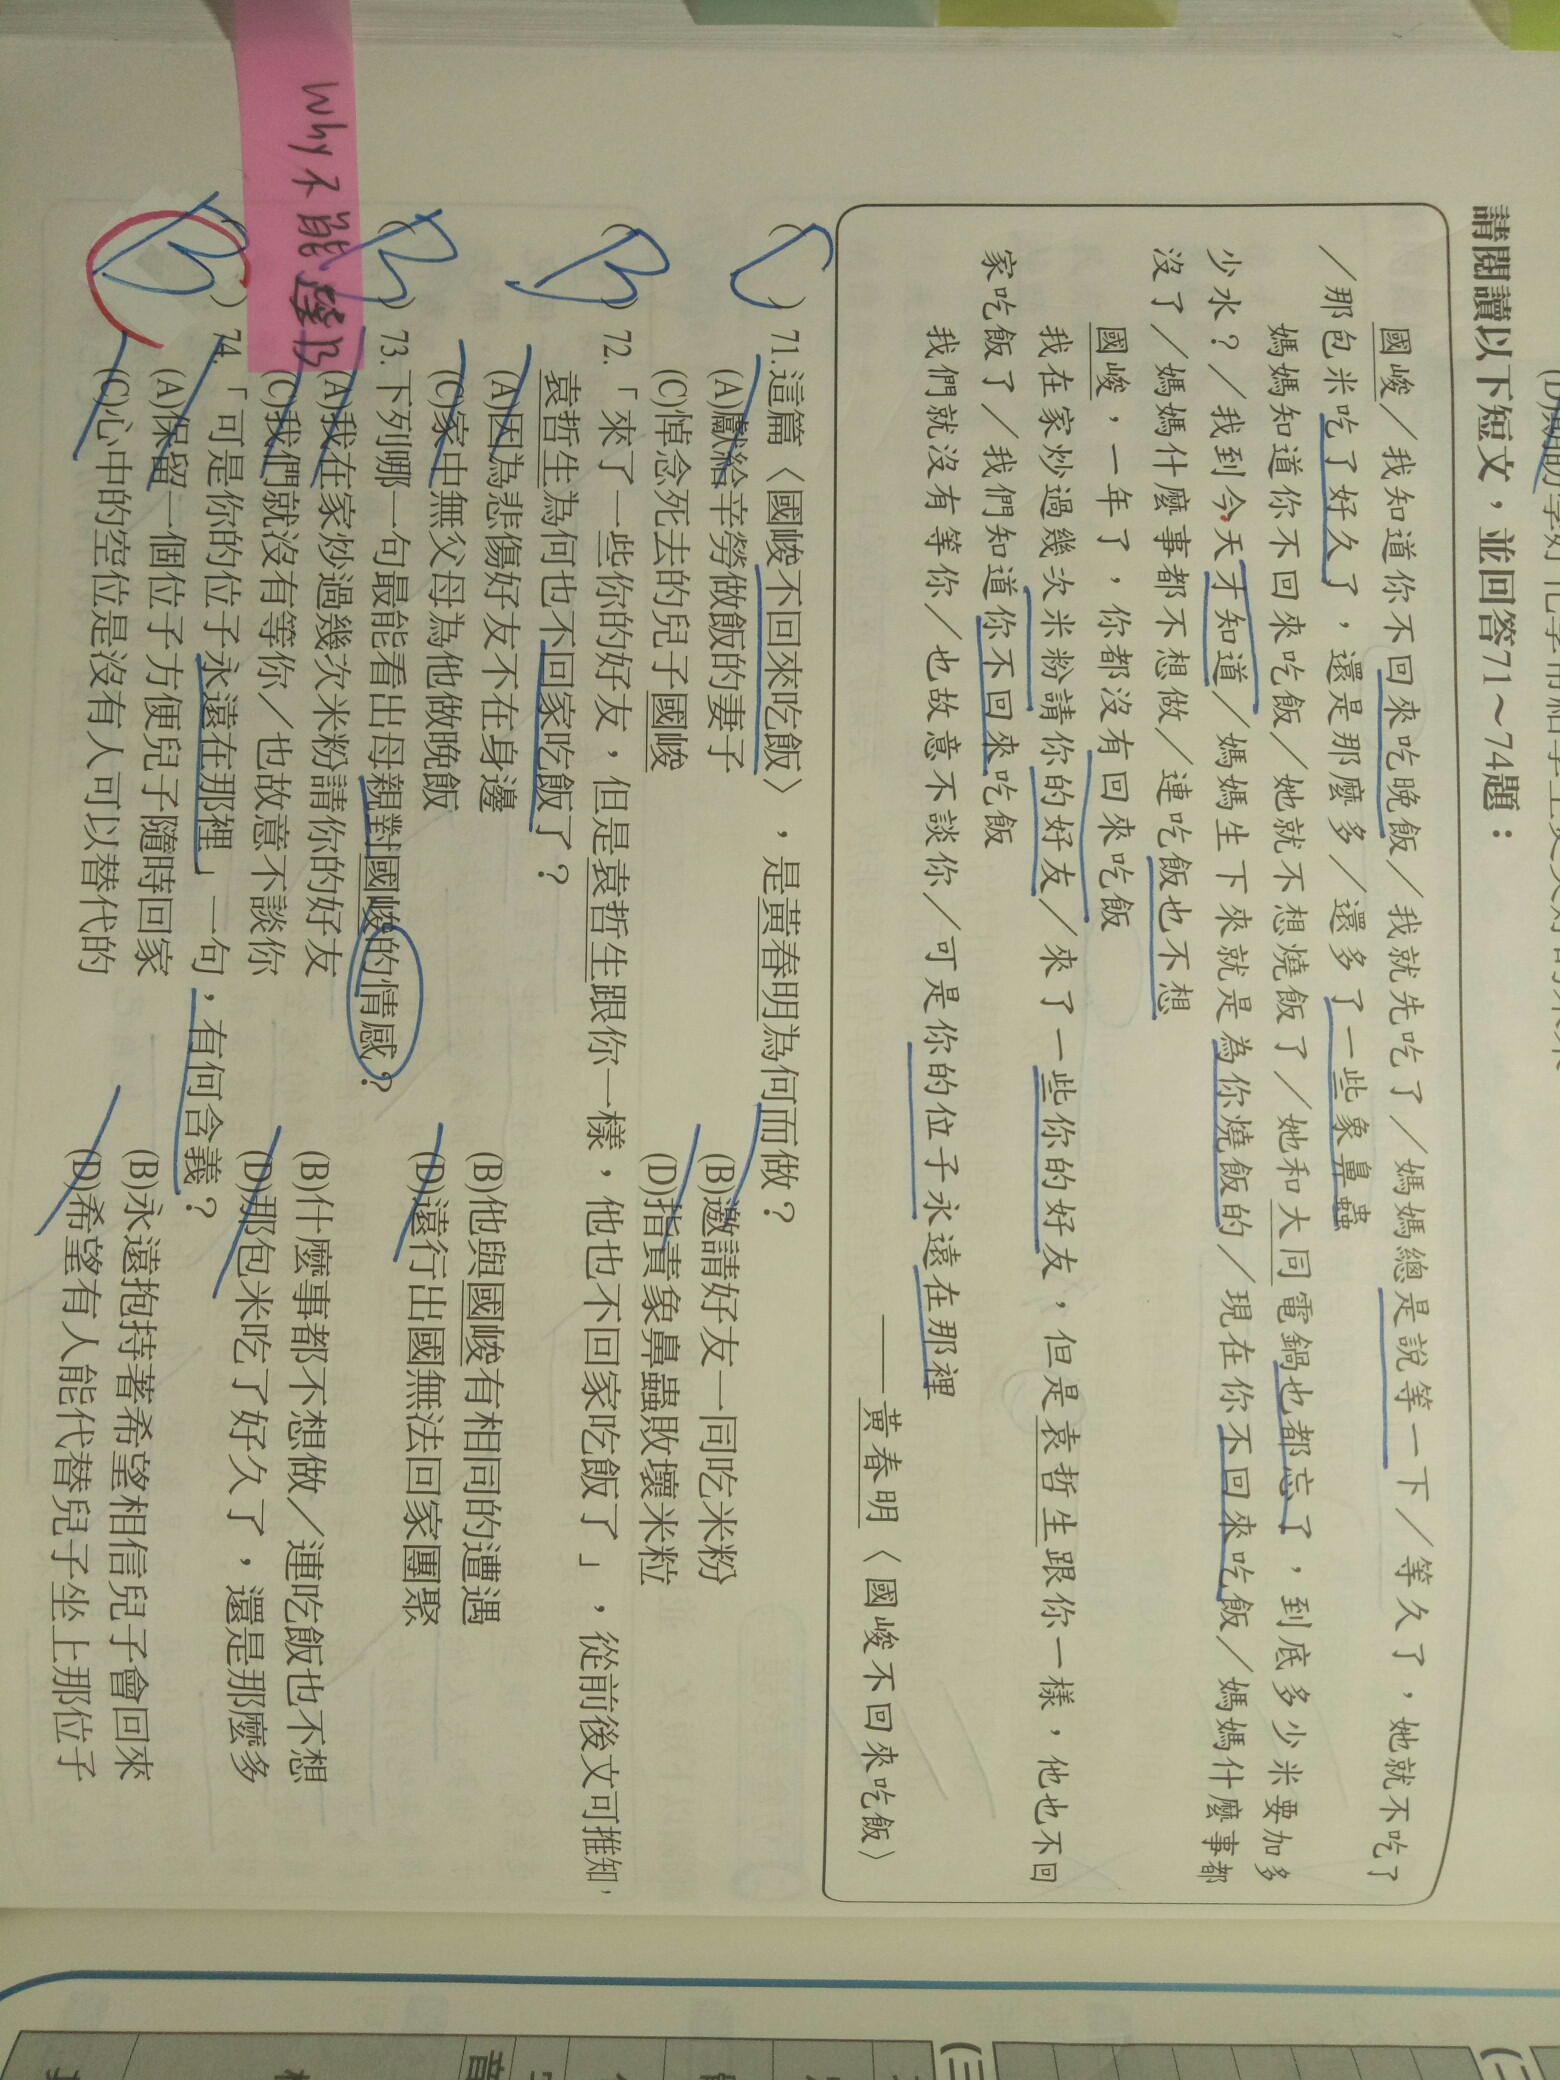 請閱讀以下短文，並回答71～74題：
國峻／我知道你不回來吃晚飯／我就先吃了／媽媽總是說等一下／等久了，她就不吃了
／那包米吃了好久了，還是那麼多／還多了一些象鼻蟲
媽媽知道你不回來吃飯／她就不想燒飯了／她和大同電鍋也都忘了，到底多少米要加多
少水？／我到今天才知道／媽媽生下來就是為你燒飯的／現在你不回來吃飯／媽媽什麼事都
沒了／媽媽什麼事都不想做／連吃飯也不想
國峻，一年了，你都沒有回來吃飯
我在家炒過幾次米粉請你的好友／來了一些你的好友，但是袁哲生跟你一樣，他也不回
家吃飯了／我們知道你不回來吃飯
我們就沒有等你／也故意不談你／可是你的位子永遠在那裡
——黃春明〈國峻不回來吃飯〉
(C) 71.這篇〈國峻不回來吃飯〉，是黃春明為何而做？
(A)獻給辛勞做飯的妻子 (B)邀請好友一同吃米粉
(C)悼念死去的兒子國峻 (D)指責象鼻蟲敗壞米粒
(B) 72.「來了一些你的好友，但是袁哲生跟你一樣，他也不回家吃飯了」，從前後文可推知，
袁哲生為何也不回家吃飯了？
(A)因為悲傷好友不在身邊 (B)他與國峻有相同的遭遇
(C)家中無父母為他做晚飯 (D)遠行出國無法回家團聚
(B) 73.下列哪一句最能看出母親對國峻的情感？
(A)我在家炒過幾次米粉請你的好友 (B)什麼事都不想做／連吃飯也不想
(C)我們就沒有等你／也故意不談你 (D)那包米吃了好久了，還是那麼多
(B) 74.「可是你的位子永遠在那裡」一句，有何含義？
(A)保留一個位子方便兒子隨時回家 (B)永遠抱持著希望相信兒子會回來
(C)心中的空位是沒有人可以替代的 (D)希望有人能代替兒子坐上那位子
Why 不能選B